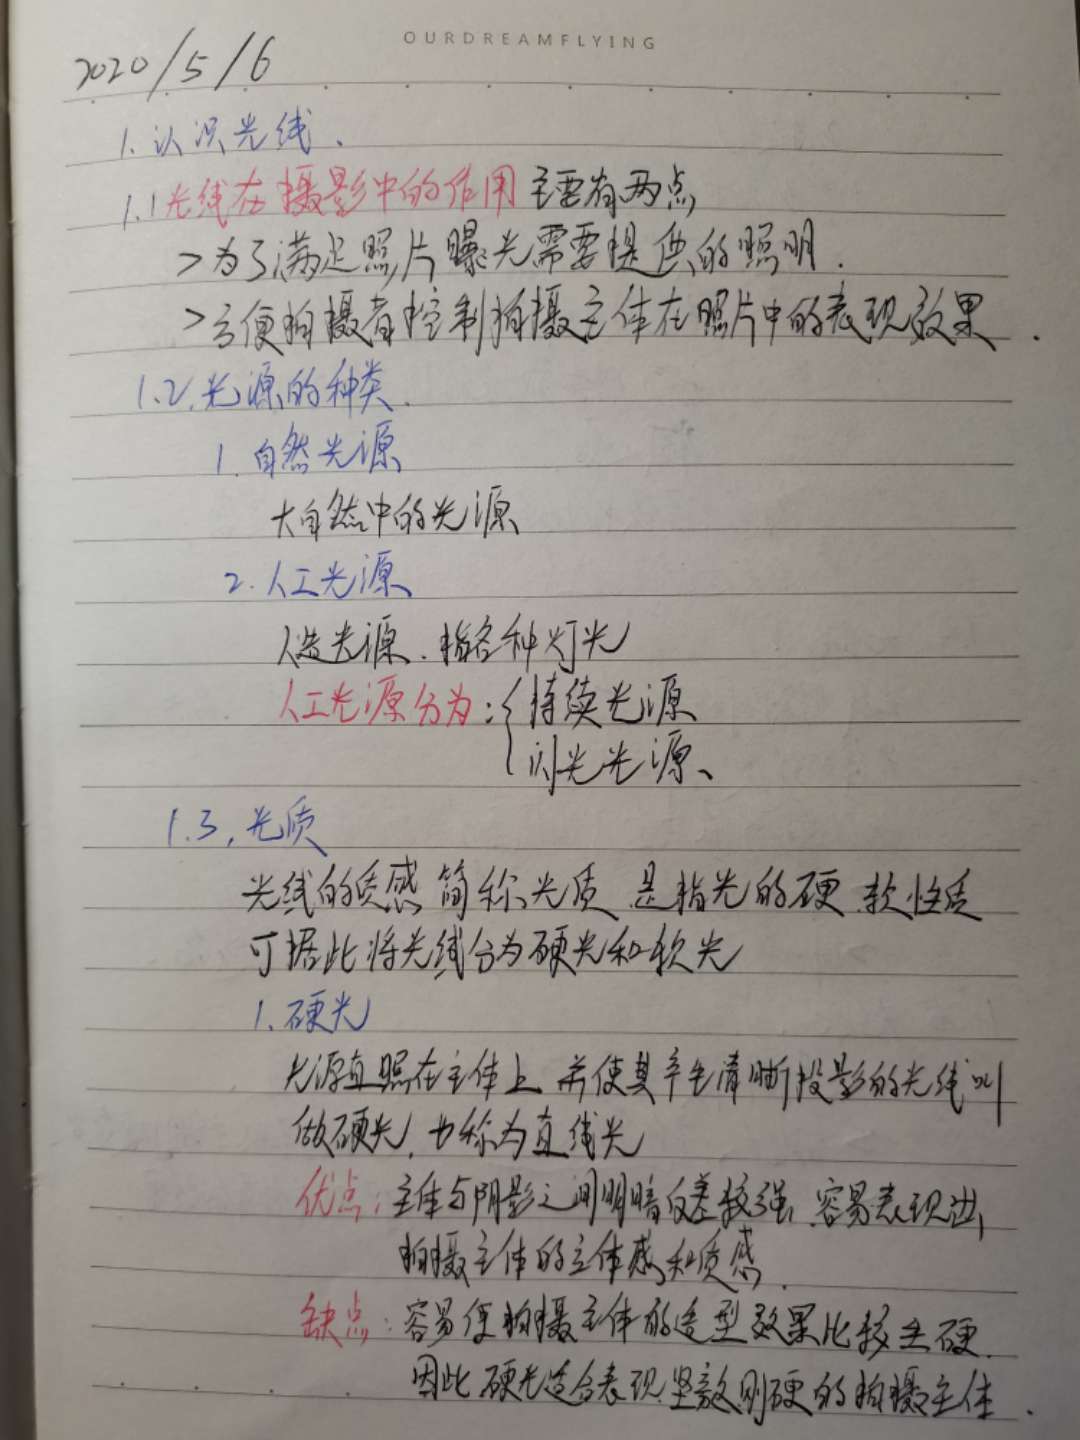 OURDREAMFLYING
2020/5/6
1.认识光线.
1.1光线在摄影中的作用 主要有两点
>为了满足照片曝光需要提供的照明.
>方便拍摄者控制拍摄主体在照片中的表现效果.
1.2.光源的种类.
1.自然光源
大自然中的光源
2.人工光源
人造光源.指各种灯光
人工光源分为:{持续光源
闪光光源、
1.3.光质
光线的质感 简称光质 是指光的硬.软性质
可据此将光线分为硬光和软光
1.硬光
光源直照在主体上 并使其产生清晰投影的光线叫
做硬光,也称为直线光
优点:主体与阴影之间明暗反差较强 容易表现出
拍摄主体的立体感和质感.
缺点:容易使拍摄主体的造型效果比较生硬.
因此硬光适合表现坚毅刚硬的拍摄主体.